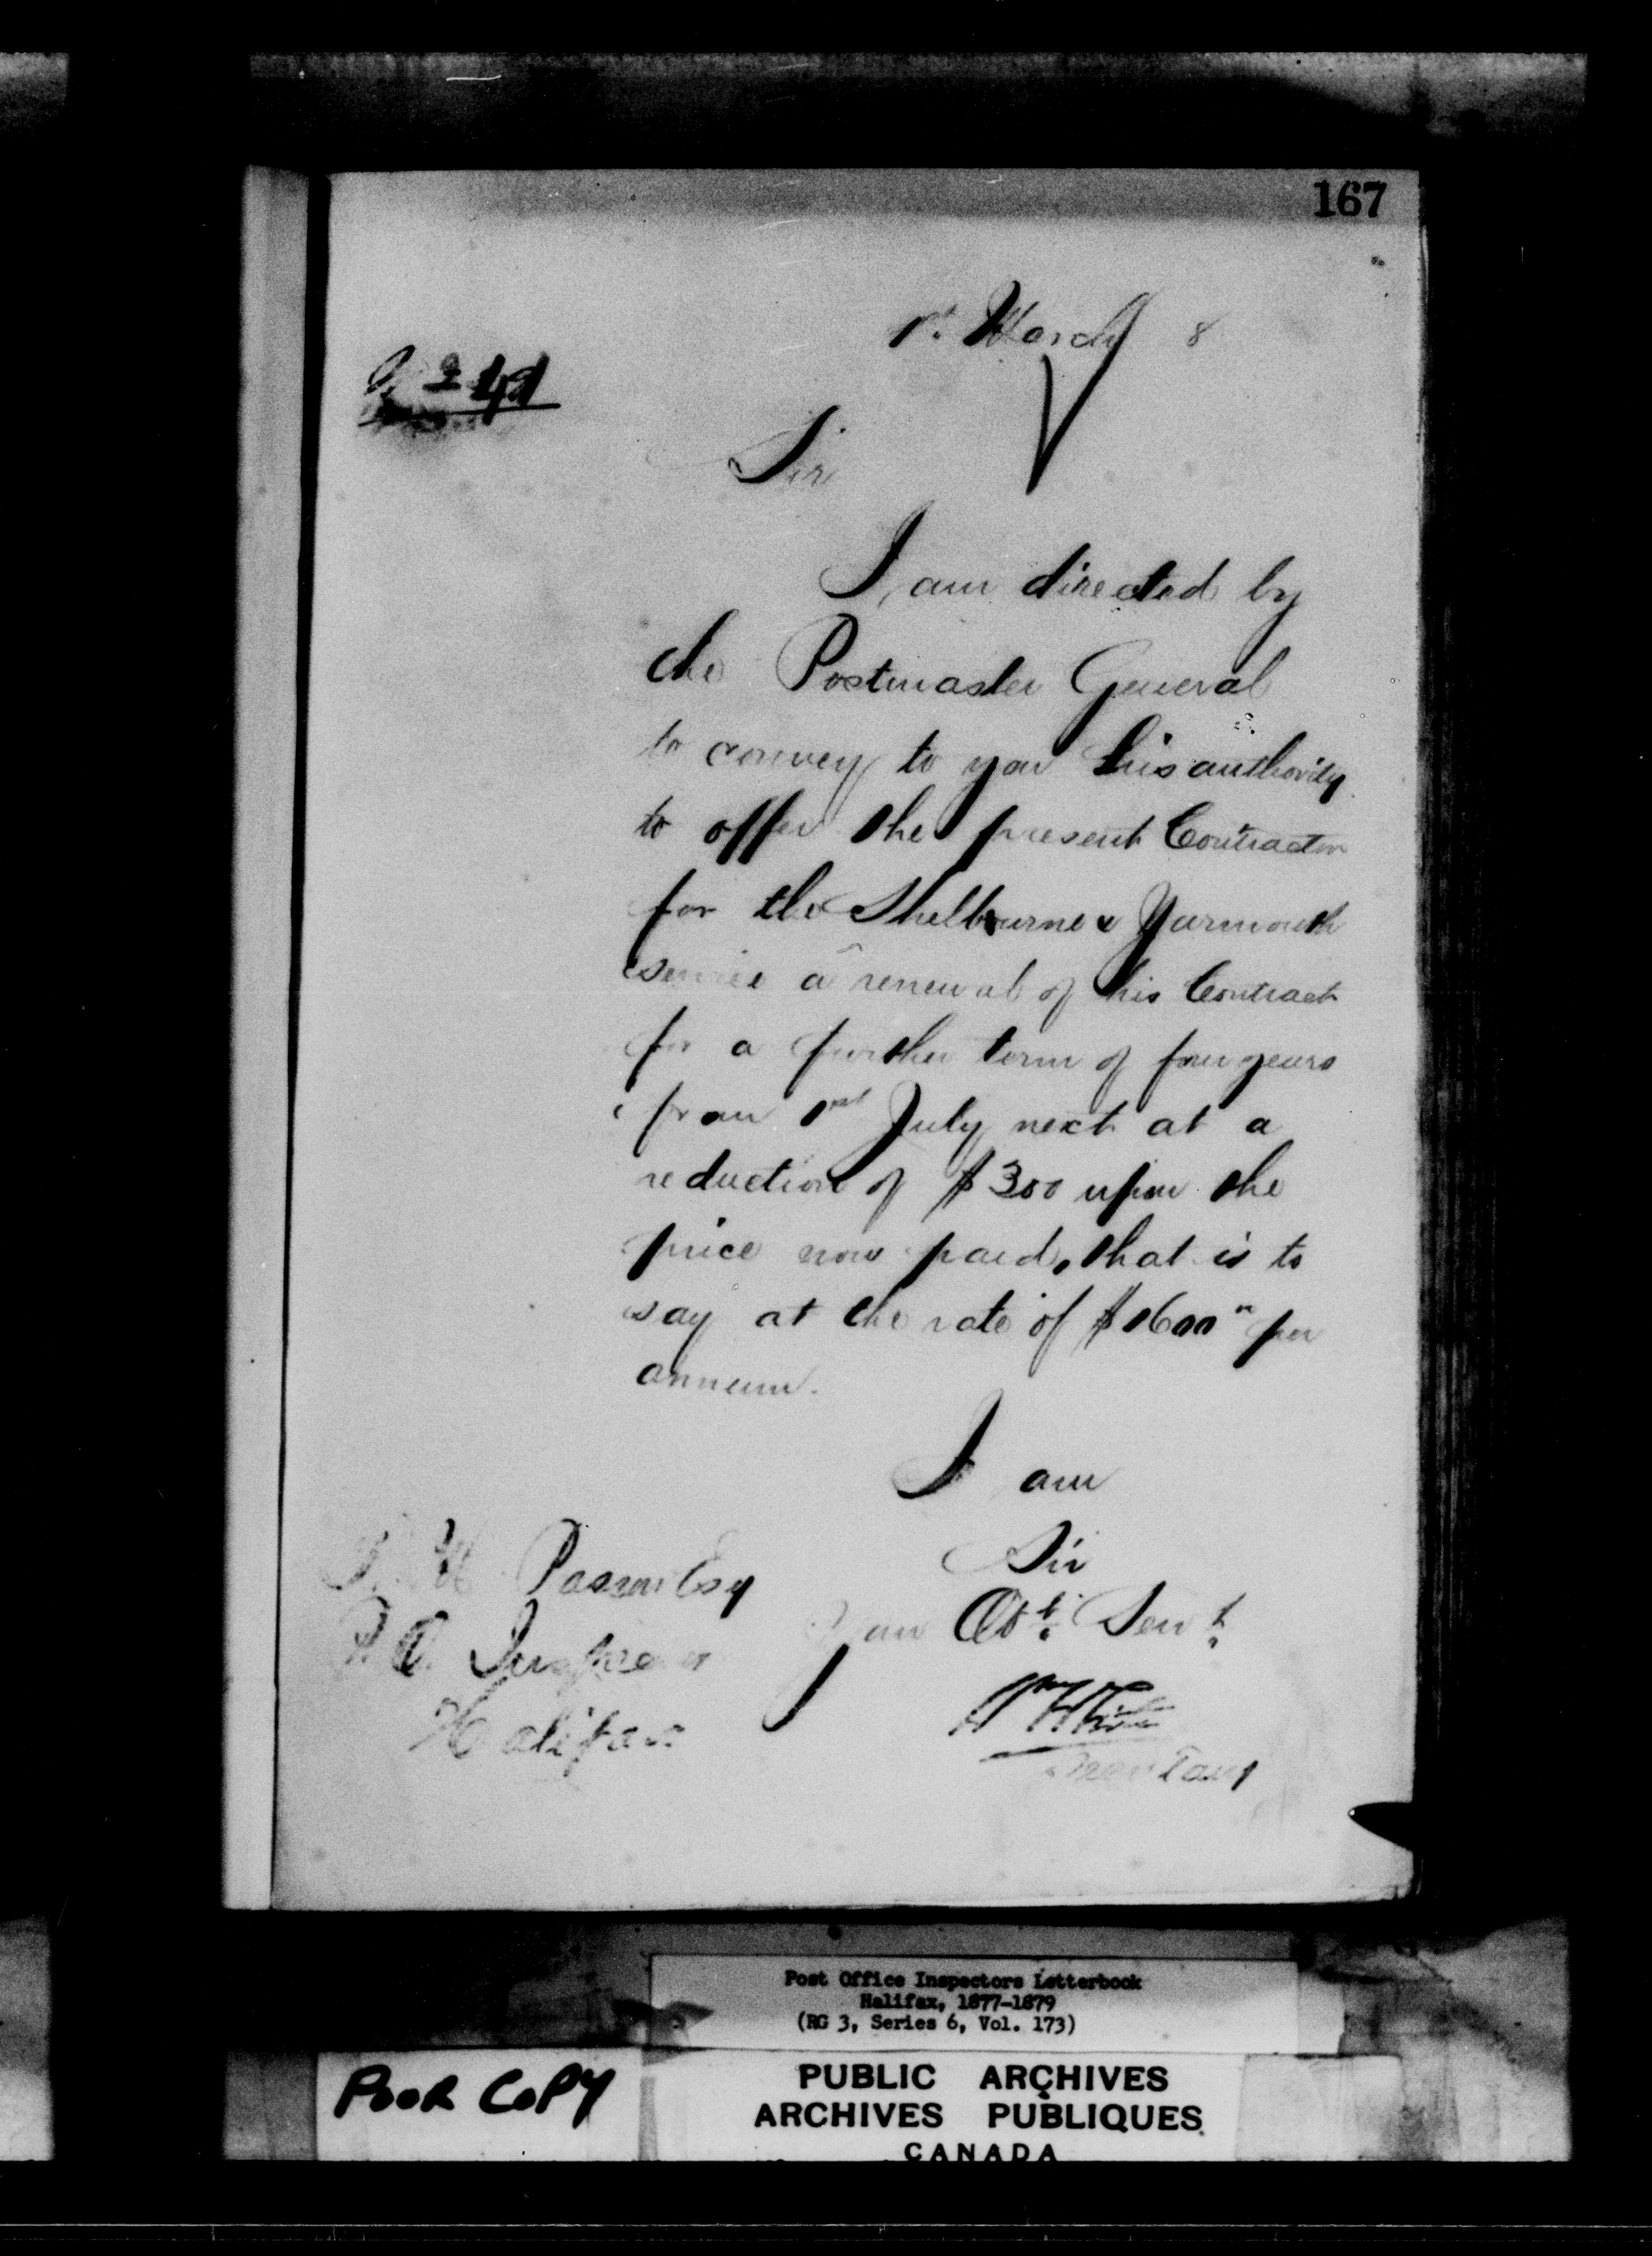 167
1st March 8
Sir
I am directed by
the Postmaster General
to convey to you his authority
to offer the present Contractor
for the Shelburne & Yarmouth
service a renewal of his Contract
for a further term of four years
from 1st July next at a
reduction of $300 upon the
price now paid, that is to
say at the rate of $1600" per
annum.
I am
Sir
Your Obt. Servt.
Secretary
Passow Esq
P.O. Inspector
Halifax
Post Office Inspectors Letterbook
Halifax, 1877-1879
(RG 3, Series 6, Vol. 173)
POOR COPY
PUBLIC ARCHIVES
ARCHIVES PUBLIQUES
CANADA